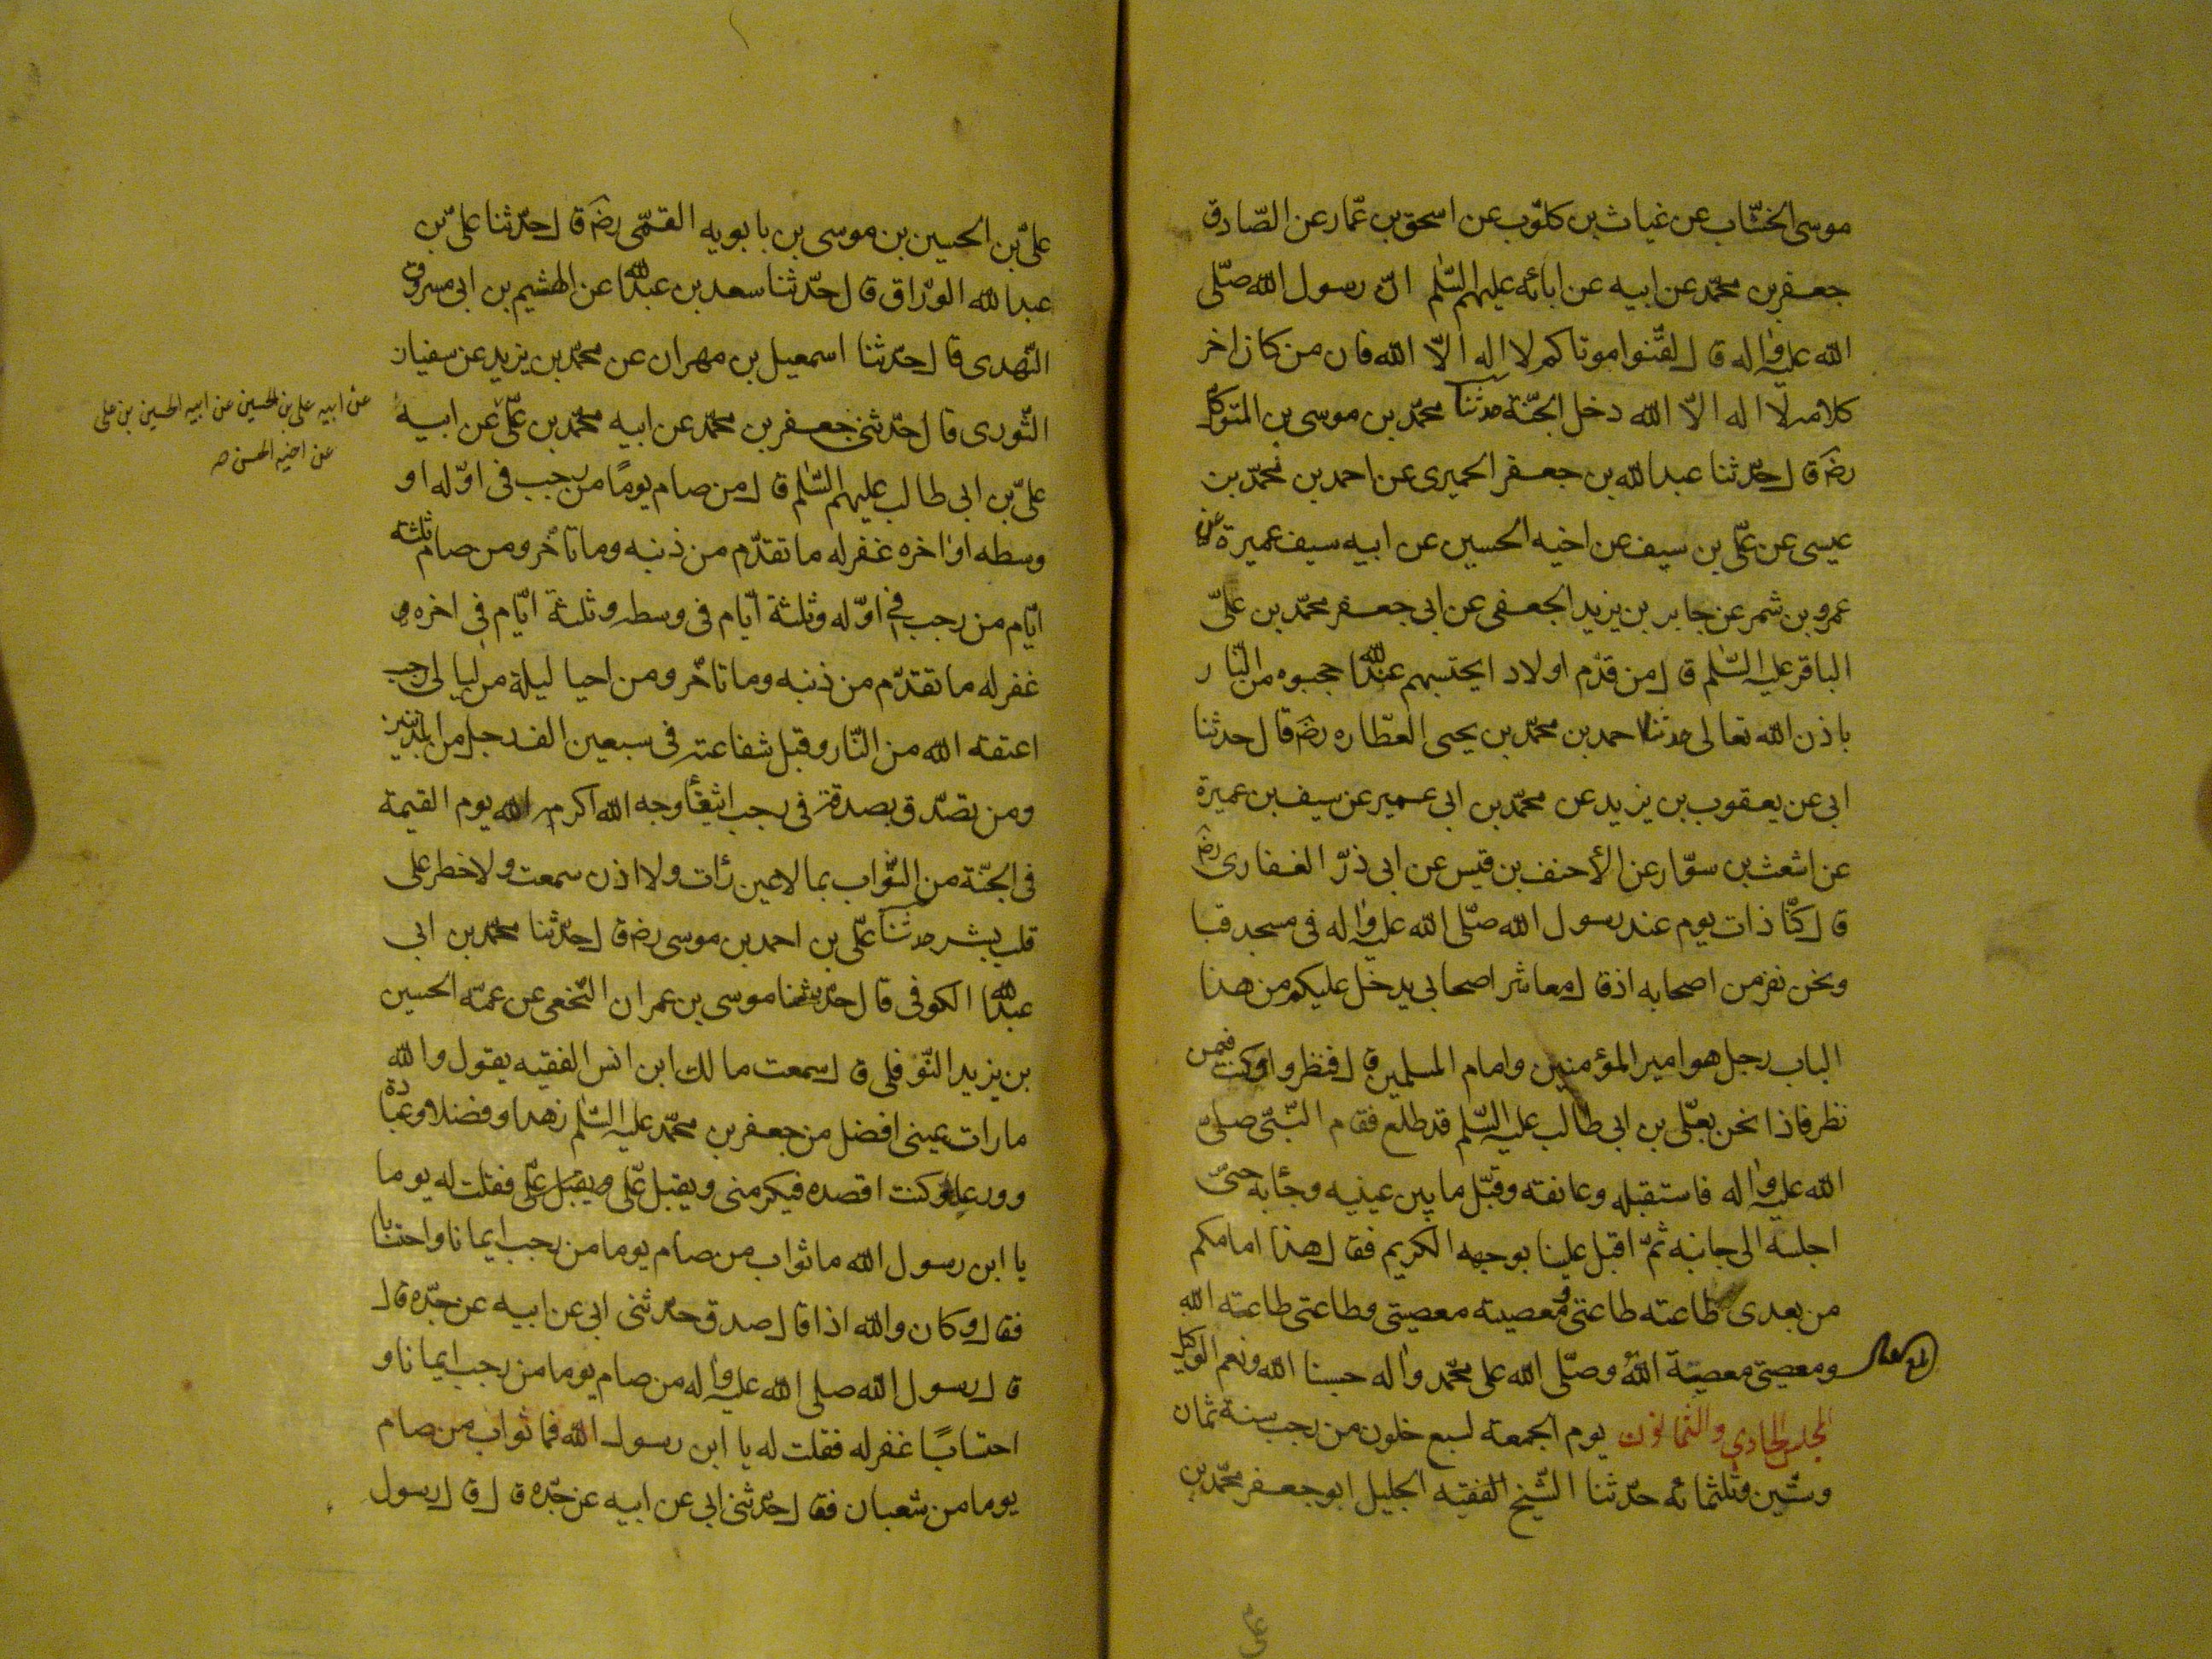 موسى الخشّاب عن غياث بن كلوّب عن اسحق بن عمّار عن الصّادق
جعفر بن محمّد عن ابيه عن ابائه عليهم السّلم انّ رسول الله صلّى
الله عليه واله قال لقّنوا موتاكم لا اله الّا الله فان من كان اخر
كلامه لا اله الّا الله دخل الجنّة حدثنا محمّد بن موسى بن المتوكل
رضى قال حدّثنا عبد الله بن جعفر الحميرى عن احمد بن محمّد بن
عيسى عن علىّ بن سيف عن اخيه الحسين عن ابيه سيف عميرة عن
عمرو بن شمر عن جابر بن يزيد الجعفى عن ابى جعفر محمّد بن علىّ
الباقر عليه السّلم قال من قدّم اولاد ايحتسبهم عند الله حجبوه من النّار
باذن الله تعالى حدثنا احمد بن محمّد بن يحيى العطّاره رضى قال حدثنا
ابى عن يعقوب بن يزيد عن محمّد بن ابى عمير عن سيف بن عميرة
عن اشعث بن سوّار عن الأحنف بن قيس عن ابى ذرّ الغفارى رضى
قال كنّا ذات يوم عند رسول الله صلّى الله عليه واله فى مسجد قبا
ونحن نفر من اصحابه اذ قال معاشر اصحابى يدخل عليكم من هذا
الباب رجل هو امير المؤمنين وامام المسلمين قال فنظروا وكنت فيمن
نظر فاذا نحن بعلّى بن ابى طالب عليه السّلم قد طلع فقام النّبىّ صلى
الله عليه واله فاستقبله وعانقه وقبّل ما بين عينيه وجآء به حتىّ
اجلسه الى جانبه ثمّ اقبل علينا بوجهه الكريم فقال هذا امامكم
من بعدى طاعته طاعتى ومعصيته معصيتى وطاعتى طاعته الله
ومعصيتى معصيته الله وصلّى الله على محمّد واله حسبنا الله ونعم الوكيل
المجلس الحادي والثمانون يوم الجمعة لسبع خلون من رجب سنة ثمان
وستّين وثلثمائه حدّثنا الشّيخ الفقيه الجليل ابو جعفر محمّد بن
على
علىّ بن الحسين بن موسى بن بابويه القمّى رضى قال حدّثنا علىّ بن
عبد الله الورّاق قال حدّثنا سعد بن عبد الله عن الهشيم بن ابى مسروق
النّهدى قال حدّثنا اسمعيل بن مهران عن محمّد بن يزيد عن سفيان
الثّورى قال حدّثنى جعفر بن محمّد عن ابيه محمّد بن علىّ عن ابيه
عن ابيه على بن الحسين عن ابيه الحسين بن على
عن اخيه الحسن صه
علىّ بن ابى طالب عليهم السّلم قال من صام يومًا من رجب فى اوّله او
وسطه او اخره غفر له ما تقدّم من ذنبه وما تاخّر ومن صام ثلثه
ايّام من رجب فى اوّله وثلثة ايّام فى وسطه وثلثة ايّام فى اخره
غفر له ما تقدّم من ذنبه وما تاخّر ومن احيا ليلة من ليالى رجب
اعتقه الله من النّار وقبل شفاعته فى سبعين الف رجل من المذنبين
ومن تصدّق بصدقة فى رجب ابتغآء وجه الله اكرمه الله يوم القيمة
فى الجنّة من الثّواب بما لا عين رأت ولا اذن سمعت ولا خطر على
قلب بشر حدثنا علىّ بن احمد بن موسى رضى قال حدّثنا محمّد بن ابى
عبد الله الكوفى قال حدّثنا موسى بن عمران النّخعى عن عمّه الحسين
بن يزيد النّوفلى قال سمعت مالك ابن انس الفقيه يقول والله
ما رات عينى افضل من جعفر بن محمّد عليه السّلم زهدا وفضلا وعبادة
وورعا وكنت اقصده فيكرمنى ويقبل علّى ويقبل علّى فقلت له يوما
يا ابن رسول الله ما ثواب من صام يوما من رجب ايمانا واحتسابا
فقال وكان والله اذا قال صدق حدّثنى ابى عن ابيه عن جدّه قال
قال رسول الله صلى الله عليه واله من صام يوما من رجب ايمانا و
احتسابًا غفر له فقلت له يا ابن رسول الله فما ثواب من صام
يوما من شعبان فقال حدّثنى ابى عن ابيه عن جدّه قال قال رسول